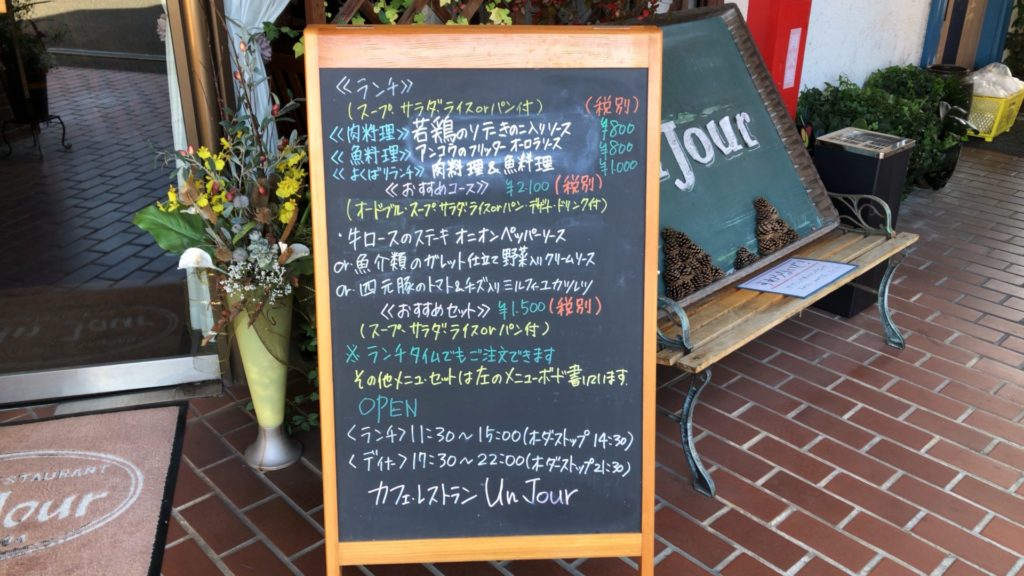 ≪ランチ≫
(スープ サラダ ライス or パン付) (税別)
≪肉料理≫ 若鶏のソテーきのこ入りソース ¥800
≪魚料理≫ アンコウのフリッター オーロラソース ¥800
≪よくばりランチ≫ 肉料理 & 魚料理 ¥1000
≪おすすめコース≫ ¥2100 (税別)
(オードブル・スープ サラダ・ライス or パン・デザート・ドリンク付)
・牛ロースのステーキ オニオンペッパーソース
or 魚介類のガレット仕立て 野菜入りクリームソース
or 四元豚のトマト&チーズ入りミルフィーユカツレツ
≪おすすめセット≫ ¥1.500 (税別)
(スープ、サラダ ライス or パン付)
※ランチタイムでもご注文できます
その他メニュー・セットは左のメニューボード書いています
OPEN
<ランチ> 11:30〜15:00 (オーダーストップ 14:30)
<ディナー> 17:30〜22:00 (オーダーストップ 21:30)
カフェ・レストラン Un Jour
Jour
STAURANT
Jour